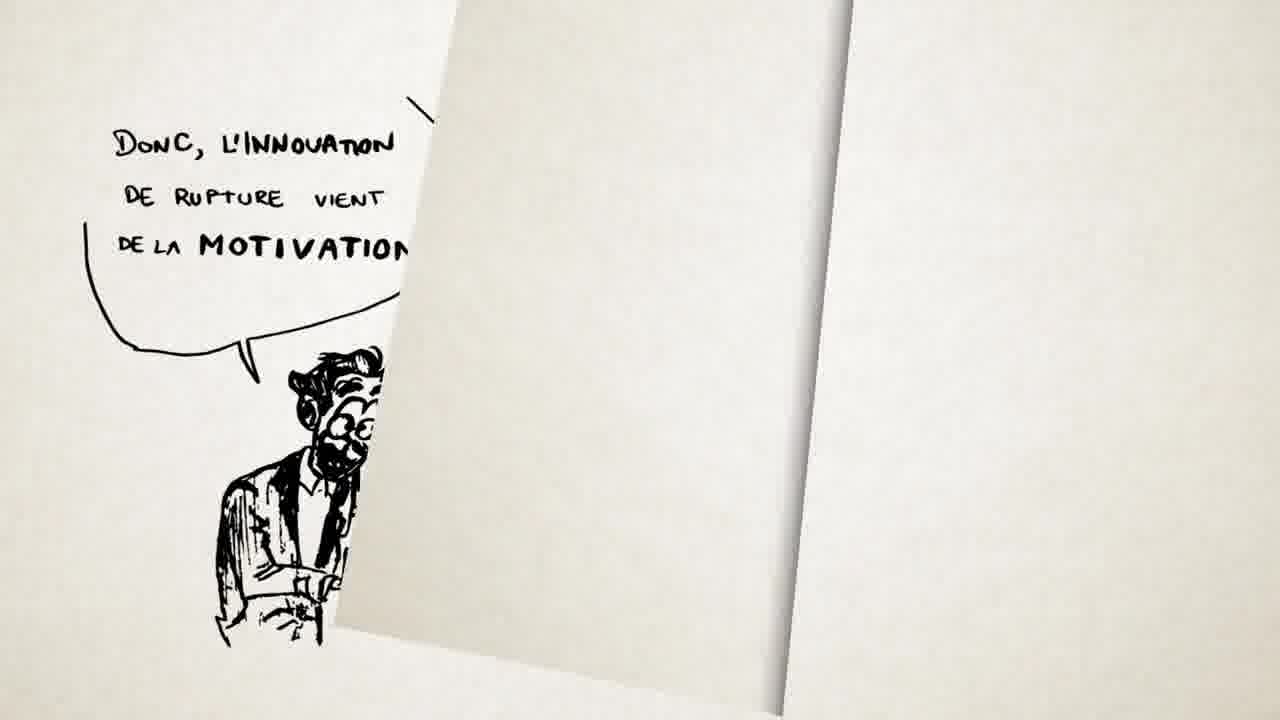 DONC, L'INNOVATION
DE RUPTURE VIENT
DE LA MOTIVATION